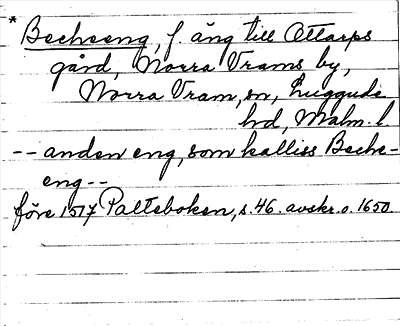 * Becheeng, f. äng till Attarps
gård, Norra Vrams by,
Norra Vram, sn, Luggude
hd, Malm. l
-- anden eng, som kalliss Beche-
eng --
före 1517 Palteboken, s. 46. avskr. o. 1650.